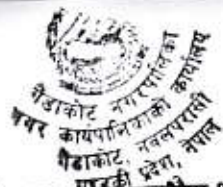 गैडाकोट नगरपालिका
नगर कार्यपालिकाको कार्यालय
गैडाकोट, नवलपरासी
गण्डकी प्रदेश, नेपाल